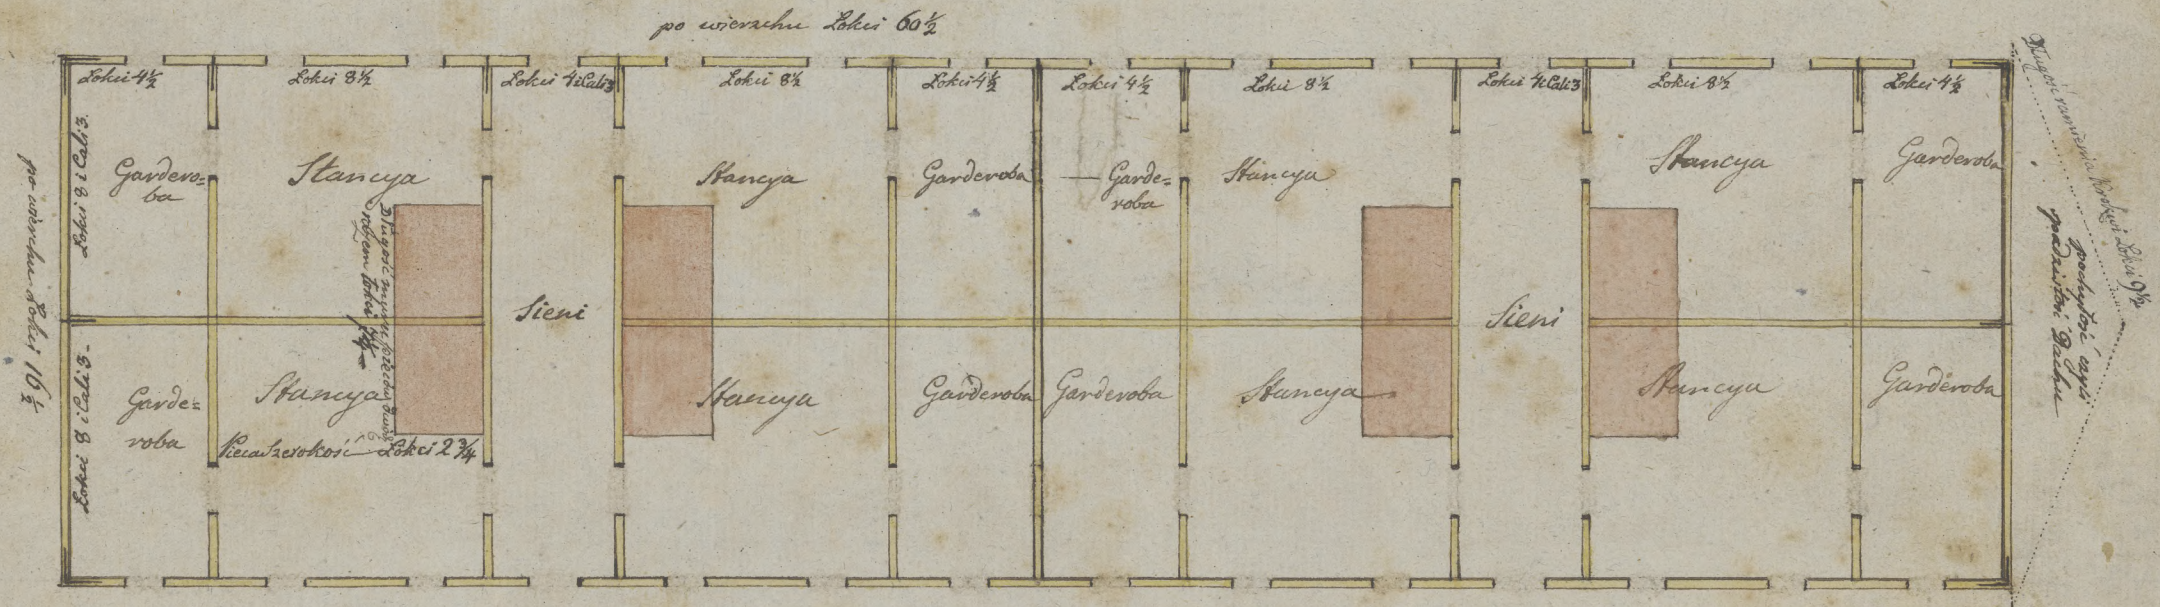 po wierzchu Łokci 60½
Łokci 4½
Łokci 8½
Łokci 4 i Cali 3
Łokci 8½
Łokci 4½
Łokci 4½
Łokci 8½
Łokci 4 i Cali 3
Łokci 8½
Łokci 4½
po wierzchu Łokci 16½
Łokci 8 i Cali 3.
Łokci 8 i Cali 3-
Gardero=
ba
Stancya
Stancya
Garderoba
Garde=
roba
Stancya
Stancya
Garderoba
Długość muru pieców
razem Łokci
Sieni
Sieni
Garde=
roba
Stancya
Pieca Szerokość Łokci 2¾
Stancya
Garderoba
Garderoba
Stancya
Stancya
Garderoba
Długość ramienia Krokwi Łokci 9½
pochyłość czyli
spadzistość Dachu